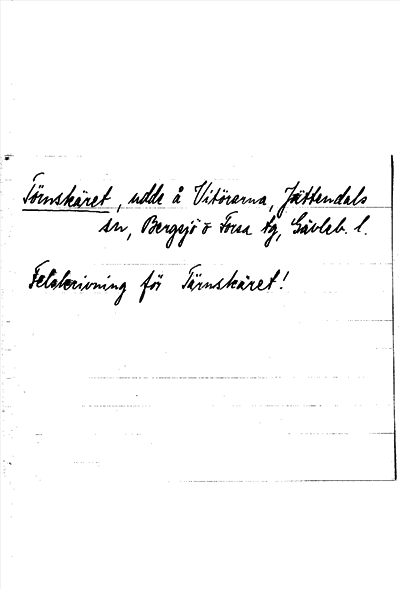 Törnskäret, udde å Vitörarna, Jättendals
sn, Bergsjö o Forsa tg, Gävleb. l.
Felskrivning för Tärnskäret!